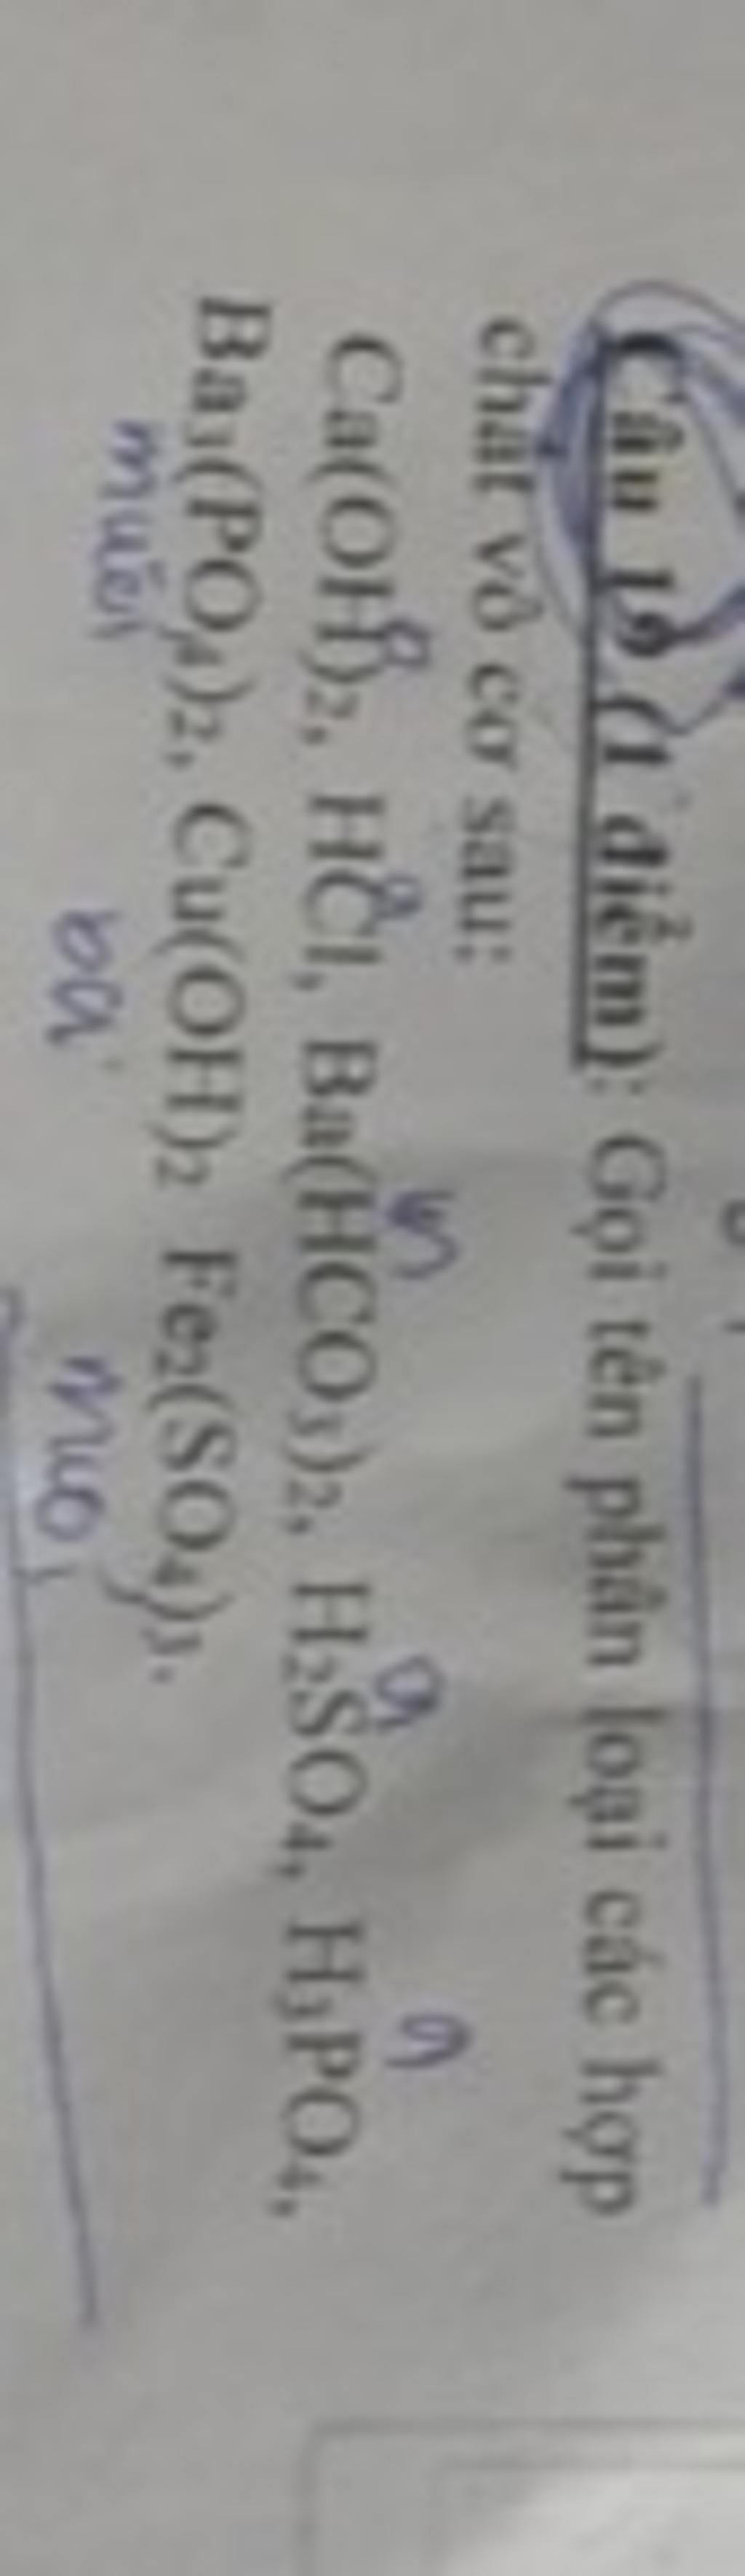 Câu 19 (1 điểm): Gọi tên phân loại các hợp
chất vô cơ sau:
Ca(OH)2, HCl, Ba(HCO3)2, H2SO4, H3PO4,
Ba3(PO4)2, Cu(OH)2 Fe2(SO4)3.
muối muối